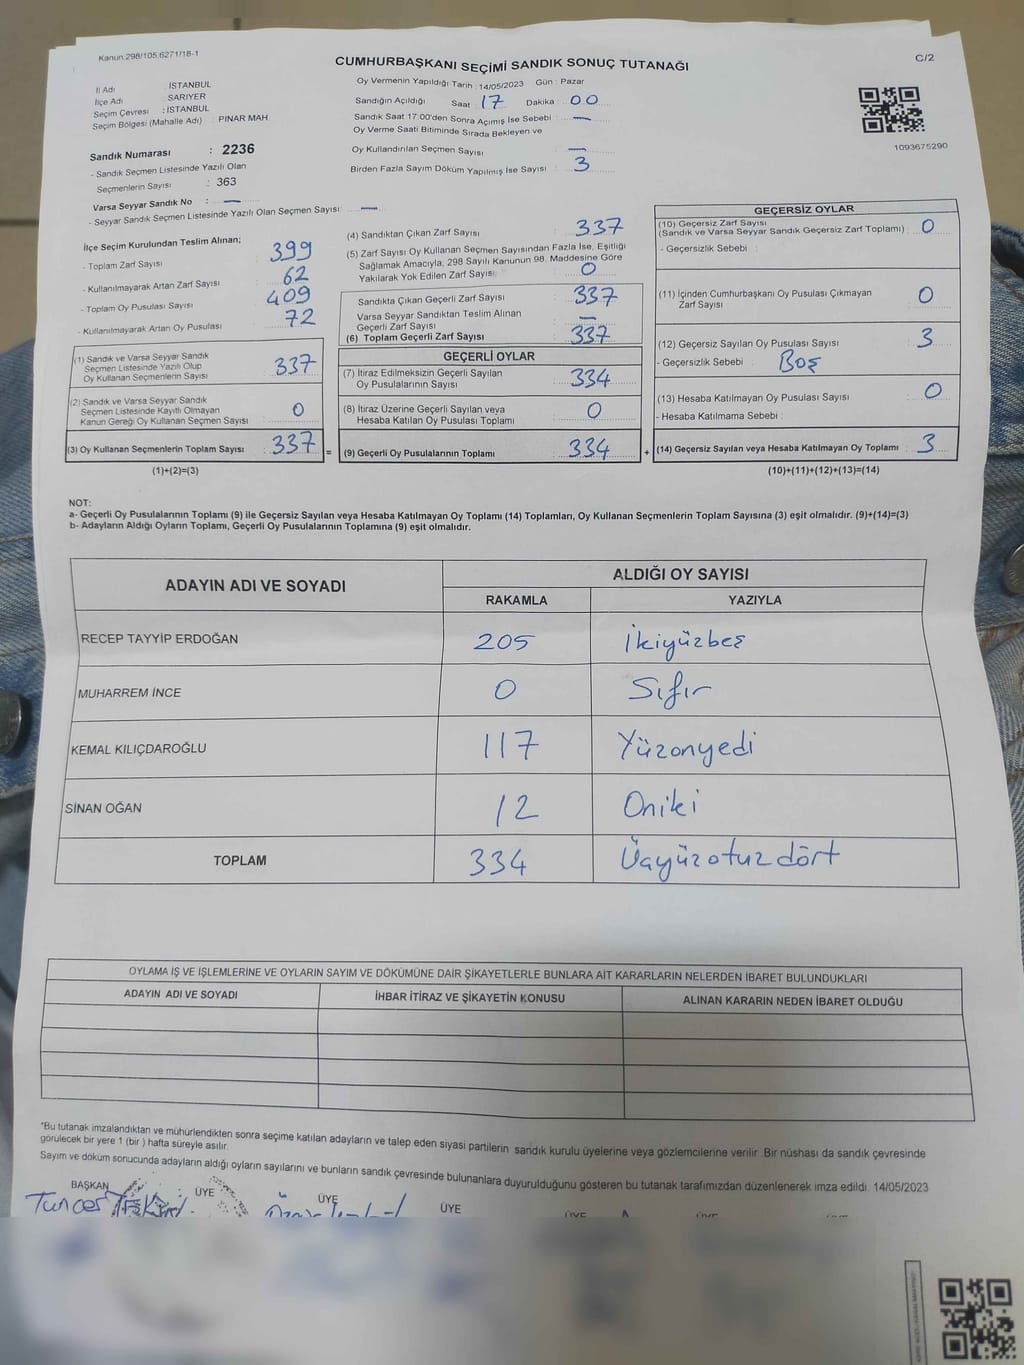 Kanun:298/105;6271/18-1
CUMHURBAŞKANI SEÇİMİ SANDIK SONUÇ TUTANAĞI
C/2
İl Adı : İSTANBUL
İlçe Adı : SARIYER
Seçim Çevresi : İSTANBUL
Seçim Bölgesi (Mahalle Adı) : PINAR MAH.
Oy Vermenin Yapıldığı Tarih : 14/05/2023 Gün : Pazar
Sandığın Açıldığı Saat 17 Dakika 00
Sandık Saat 17:00'den Sonra Açımış İse Sebebi : —
Oy Verme Saati Bitiminde Sırada Bekleyen ve
Oy Kullandırılan Seçmen Sayısı : —
Birden Fazla Sayım Döküm Yapılmış İse Sayısı : 3
1093675290
Sandık Numarası : 2236
- Sandık Seçmen Listesinde Yazılı Olan
Seçmenlerin Sayısı : 363
Varsa Seyyar Sandık No : —
- Seyyar Sandık Seçmen Listesinde Yazılı Olan Seçmen Sayısı: —
İlçe Seçim Kurulundan Teslim Alınan;
- Toplam Zarf Sayısı : 399
- Kullanılmayarak Artan Zarf Sayısı : 62
- Toplam Oy Pusulası Sayısı : 409
- Kullanılmayarak Artan Oy Pusulası : 72
(1) Sandık ve Varsa Seyyar Sandık
Seçmen Listesinde Yazılı Olup
Oy Kullanan Seçmenlerin Sayısı : 337
(2) Sandık ve Varsa Seyyar Sandık
Seçmen Listesinde Kayıtlı Olmayan
Kanun Gereği Oy Kullanan Seçmen Sayısı : 0
(3) Oy Kullanan Seçmenlerin Toplam Sayısı : 337 =
(1)+(2)=(3)
(4) Sandıktan Çıkan Zarf Sayısı : 337
(5) Zarf Sayısı Oy Kullanan Seçmen Sayısından Fazla İse, Eşitliği
Sağlamak Amacıyla, 298 Sayılı Kanunun 98. Maddesine Göre
Yakılarak Yok Edilen Zarf Sayısı : 0
Sandıkta Çıkan Geçerli Zarf Sayısı : 337
Varsa Seyyar Sandıktan Teslim Alınan
Geçerli Zarf Sayısı : —
(6) Toplam Geçerli Zarf Sayısı : 337
GEÇERLİ OYLAR
(7) İtiraz Edilmeksizin Geçerli Sayılan
Oy Pusulalarının Sayısı : 334
(8) İtiraz Üzerine Geçerli Sayılan veya
Hesaba Katılan Oy Pusulası Toplamı : 0
(9) Geçerli Oy Pusulalarının Toplamı : 334 +
GEÇERSİZ OYLAR
(10) Geçersiz Zarf Sayısı
(Sandık ve Varsa Seyyar Sandık Geçersiz Zarf Toplamı) : 0
- Geçersizlik Sebebi :
(11) İçinden Cumhurbaşkanı Oy Pusulası Çıkmayan
Zarf Sayısı : 0
(12) Geçersiz Sayılan Oy Pusulası Sayısı : 3
- Geçersizlik Sebebi : Boş
(13) Hesaba Katılmayan Oy Pusulası Sayısı : 0
- Hesaba Katılmama Sebebi :
(14) Geçersiz Sayılan veya Hesaba Katılmayan Oy Toplamı : 3
(10)+(11)+(12)+(13)=(14)
NOT:
a- Geçerli Oy Pusulalarının Toplamı (9) ile Geçersiz Sayılan veya Hesaba Katılmayan Oy Toplamı (14) Toplamları, Oy Kullanan Seçmenlerin Toplam Sayısına (3) eşit olmalıdır. (9)+(14)=(3)
b- Adayların Aldığı Oyların Toplamı, Geçerli Oy Pusulalarının Toplamına (9) eşit olmalıdır.
ADAYIN ADI VE SOYADI ALDIĞI OY SAYISI
RAKAMLA YAZIYLA
RECEP TAYYİP ERDOĞAN 205 İkiyüzbeş
MUHARREM İNCE 0 Sıfır
KEMAL KILIÇDAROĞLU 117 Yüzonyedi
SİNAN OĞAN 12 Oniki
TOPLAM 334 Üçyüzotuzdört
OYLAMA İŞ VE İŞLEMLERİNE VE OYLARIN SAYIM VE DÖKÜMÜNE DAİR ŞİKAYETLERLE BUNLARA AİT KARARLARIN NELERDEN İBARET BULUNDUKLARI
ADAYIN ADI VE SOYADI İHBAR İTİRAZ VE ŞİKAYETİN KONUSU ALINAN KARARIN NEDEN İBARET OLDUĞU
*Bu tutanak imzalandıktan ve mühürlendikten sonra seçime katılan adayların ve talep eden siyasi partilerin sandık kurulu üyelerine veya gözlemcilerine verilir. Bir nüshası da sandık çevresinde
görülecek bir yere 1 (bir ) hafta süreyle asılır.
Sayım ve döküm sonucunda adayların aldığı oyların sayılarını ve bunların sandık çevresinde bulunanlara duyurulduğunu gösteren bu tutanak tarafımızdan düzenlenerek imza edildi. 14/05/2023
BAŞKAN ÜYE ÜYE ÜYE
Tuncer